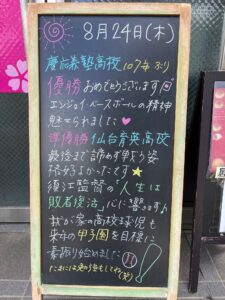 8月24日(木)
慶応義塾高校 107年ぶり
優勝おめでとうございます
エンジョイ・ベースボールの精神
魅せられました♡
準優勝 仙台育英高校
最後まで諦めず戦う姿
格好よかったです★
須江監督の「人生は
敗者復活」心に響きます♪
我が家の高校球児も
来年の甲子園を目標に
素振り始めました